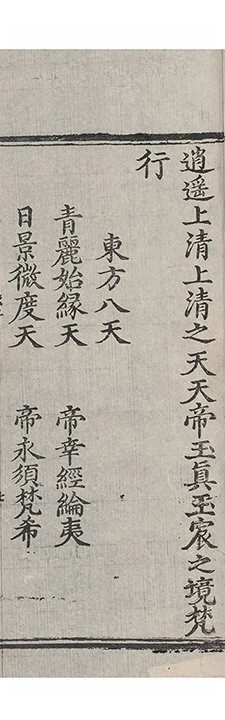 逍遥上清上清之天天帝玉真玉宸之境梵
行
東方八天
青麗始縁天 帝幸經綸夷
日景微度天 帝永須梵希